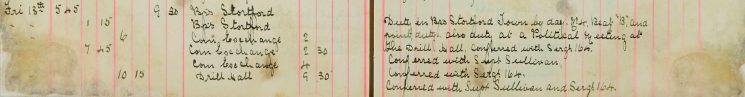 Fri 13th 5 45 9 30 Bps Stortford
" " 1 15 Bps Stortford
6 Corn Exchange 2
7 45 Corn Exchange 2 30
Corn Exchange 4
10 15 Drill Hall 9 30
Duty in Bps Stortford Town by day, No 4 Beat "B" and
point duty, also duty at a Political Meeting at
the Drill Hall, Conferred with Sergt 164.
Conferred with Supt Sullivan.
Conferred with Sergt 164.
Conferred with Supt Sullivan and Sergt 164.